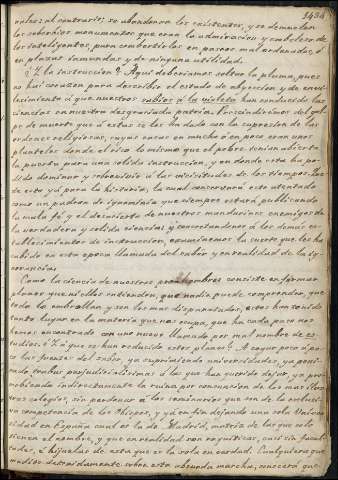 1434
rales: al contrario; se abandonan los existentes, y se demuelen
los soberbios monumentos que eran la admiracion y embeleso de
los inteligentes, para combertirlos en paseos mal ordenados, ó
en plazas inmundas y de ninguna utilidad.
¿Y la instruccion? Aqui deberiamos soltar la pluma, pues
no hai corazon para describir el estado de abyeccion y de envi-
lecimiento á que nuestros sabios á la violeta han conducido las
ciencias en nuestra desgraciada patria. Prescindiremos del gol-
pe de muerte que á estas se les ha dado con la supresion de las
ordenes religiosas, cuyas casas en mucho ó en poco eran unos
planteles donde el rico lo mismo que el pobre tenian abierta
la puerta para una solida instruccion, y en donde esta ha po-
dido dominar y sobrevivir á las vicisitudes de los tiempos.
de esto yá para la historia, la cual conservará este atentado
como un padron de ignominia que siempre estará publicando
la mala fé y el desacierto de nuestros mandarines enemigos de
la verdadera y solida ciencia; y concretandonos á los demás es-
tablecimientos de instruccion, examinemos la suerte que les ha
cabido en esta epoca llamada del saber y en realidad de la ig-
norancia.
Como la ciencia de nuestros prohombres consiste en formar
planes que ni ellos entienden, que nadie puede comprender, que
todo lo embrollan y son los mas disparatados, estos han tenido
tanto lugar en la materia que nos ocupa, que há cada paso nos
hemos encontrado con uno nuevo llamado por mal nombre de es-
tudios. ¿Y á que se han reducido estos planes? A cegar poco á po-
co las fuentes del saber, ya suprimiendo universidades, ya ponien-
do trabas perjudicialisimas á las que han querido dejar, ya pro-
moviendo indirectamente la ruina por consuncion de los
tros colegios, sin perdonar á los seminarios que son de la esclusi-
va competencia de los Obispos, y yá en fin dejando una sola Univer-
sidad en España cual es la de Madrid, matriz de las que solo
tienen el nombre, y que en realidad son casi sin facul-
tades, é hijuelas de esta que es la sola en verdad. Cualquiera que
medite detenidamente sobre esta absurda marcha, conocerá que